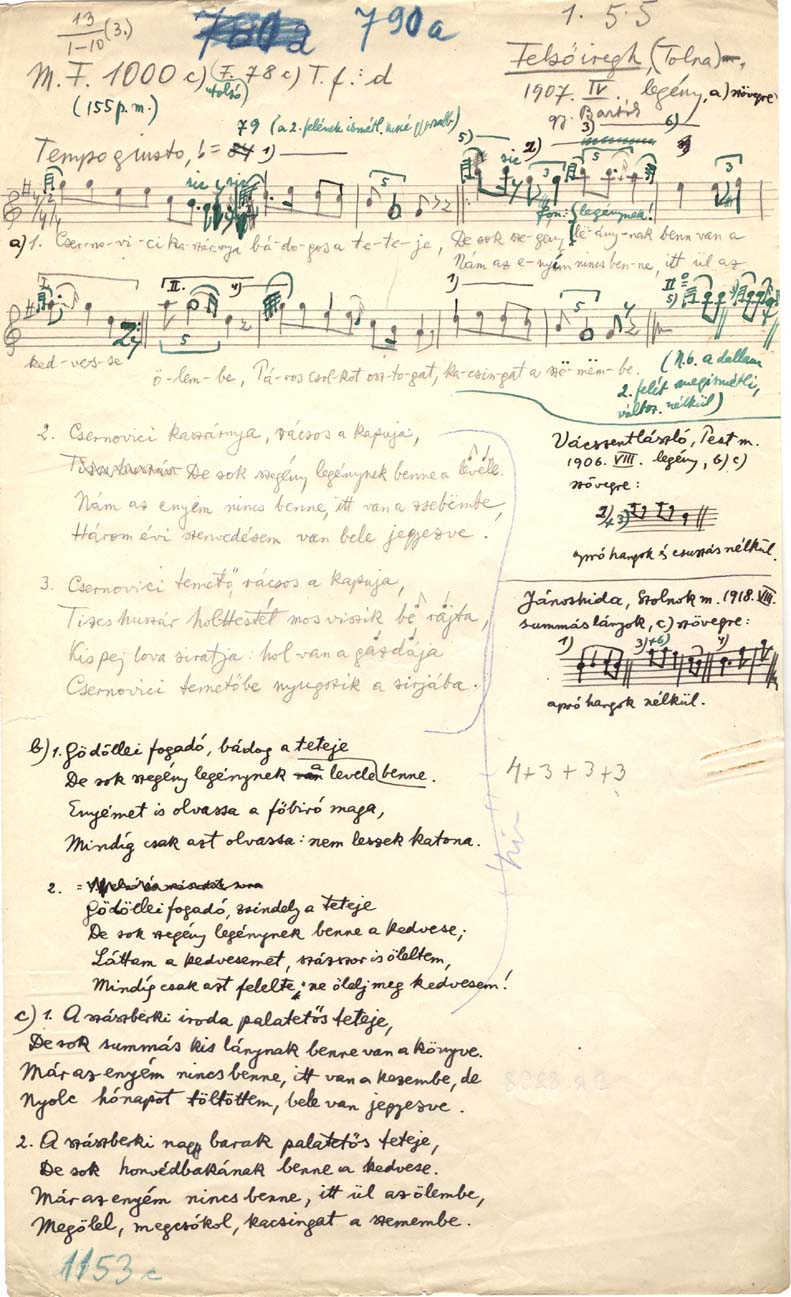 13
1-10 (3.)
780a 790a
1. 5.5
M.F. 1000 c) (F. 78 c) T.f.: d
utolsó
(155 p.m.)
Felsőiregh (Tolna),
1907. IV. légény, a) szövegre
gy. Bartók
79 (a 2. felének ismétl.
Tempo giusto, 1)
5) sic 2) 3) 6)
sic
fon: legénynek!
a) 1. Cser-no-vi-ci ka-szárnya bá-do-gos a te-te-je, De sok sze-gény lë-ány-nak benn van a
Nám az e-nyém nincs ben-ne, itt ül az
I. II. 4) 1) II 5)
ked-ves-se
ö-lem-be, Pá-ros csól-kot osz-to-gat, ka-csin-gat a szë-mëm-be.
(N.b. a dallam
2. felét megismétli,
változ. nélkül)
2. Csernovici kaszárnya, rácsos a kapuja,
De sok szegény legénynek benne a levele.
Nám az enyém nincs benne, itt van a zsebëmbe,
Három évi szenvedésem van bele jegyezve.
Vácszentlászló, Pest m.
1906. VIII. legény, b) c)
szövegre:
2) +3)
apró hangok és csuszás nélkül.
3. Csernovici temető, rácsos a kapuja,
Tizes huszár holttestét mos viszik be rajta,
Kis pej lova siratja: hol van a gazdája
Csernovici temetőbe nyugszik a sirjába.
Jánoshida, Szolnok m. 1918. VIII.
summás lányok, c) szövegre:
1) 3) +6) 4)
apró hangok nélkül.
b) 1. Gödöllei fogadó, bádog a teteje
De sok szegény legénynek a levele benne.
Enyémet is olvassa a főbiró maga,
Mindíg csak azt olvassa: nem leszek katona.
4+3+3+3
2. =
Gödöllei fogadó, zsindely a teteje
De sok szegény legénynek benne a kedvese;
Láttam a kedvesemet, százszor is öleltem,
Mindíg csak azt felelte: ne ölelj meg kedvesem!
c) 1. A szászberki iroda palatetős teteje,
De sok summás kis lánynak benne van a könyve.
Már az enyém nincs benne, itt van a kezembe, de
Nyolc hónapot töltöttem, bele van jegyezve.
2. A szászberki nagy barak palatetős teteje,
De sok honvédbakának benne a kedvese.
Már az enyém nincs benne, itt ül az ölembe,
Megölel, megcsókol, kacsingat a szemembe.
1153 c